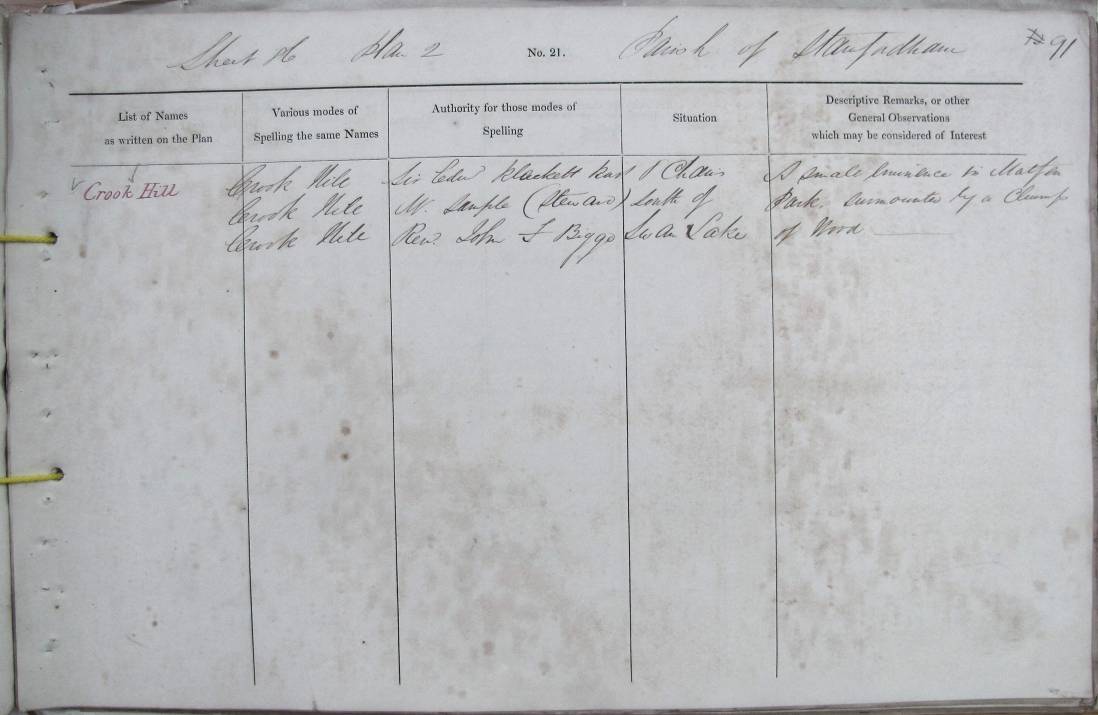 Sheet 86 Plan 2 No. 21. Parish of Stamfordham 91
List of Names
as written on the Plan
Various modes of
Spelling the same Names
Authority for those modes of
Spelling
Situation
Descriptive Remarks, or other
General Observations
which may be considered of Interest
Crook Hill
Crook Hill
Crook Hill
Crook Hill
Sir Edwd Blackett Bart
Mr. Sample (Steward)
Revd. John F Bigge
Chains
South of
Swan Lake
A small Eminence in Matfen
Park, surmounted by a Clump
of Wood